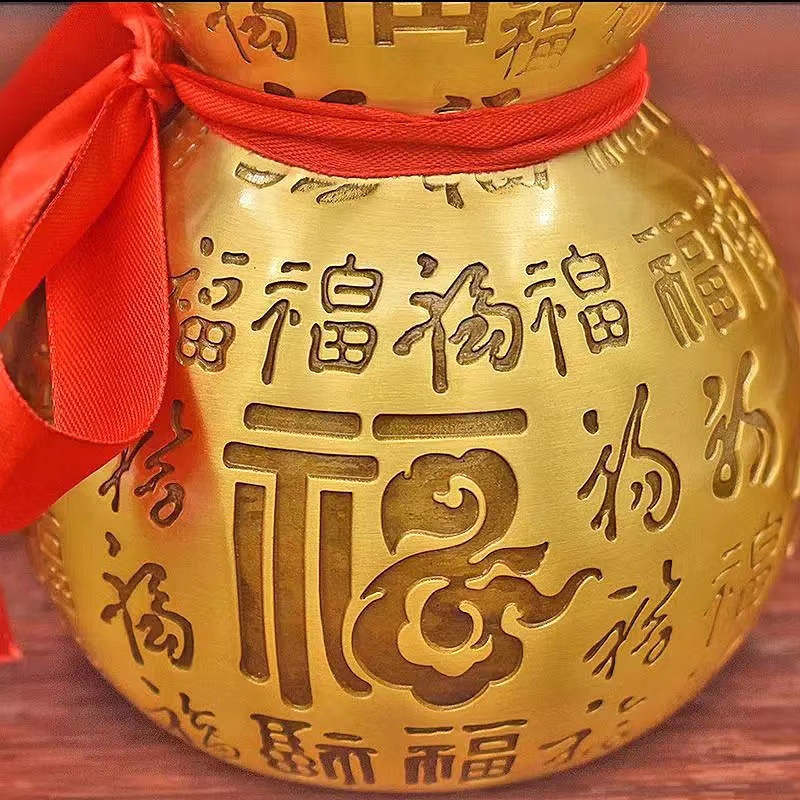 福 福 福
福 福 福 福 福 福
福 福 福 福
福 福 福
福 福